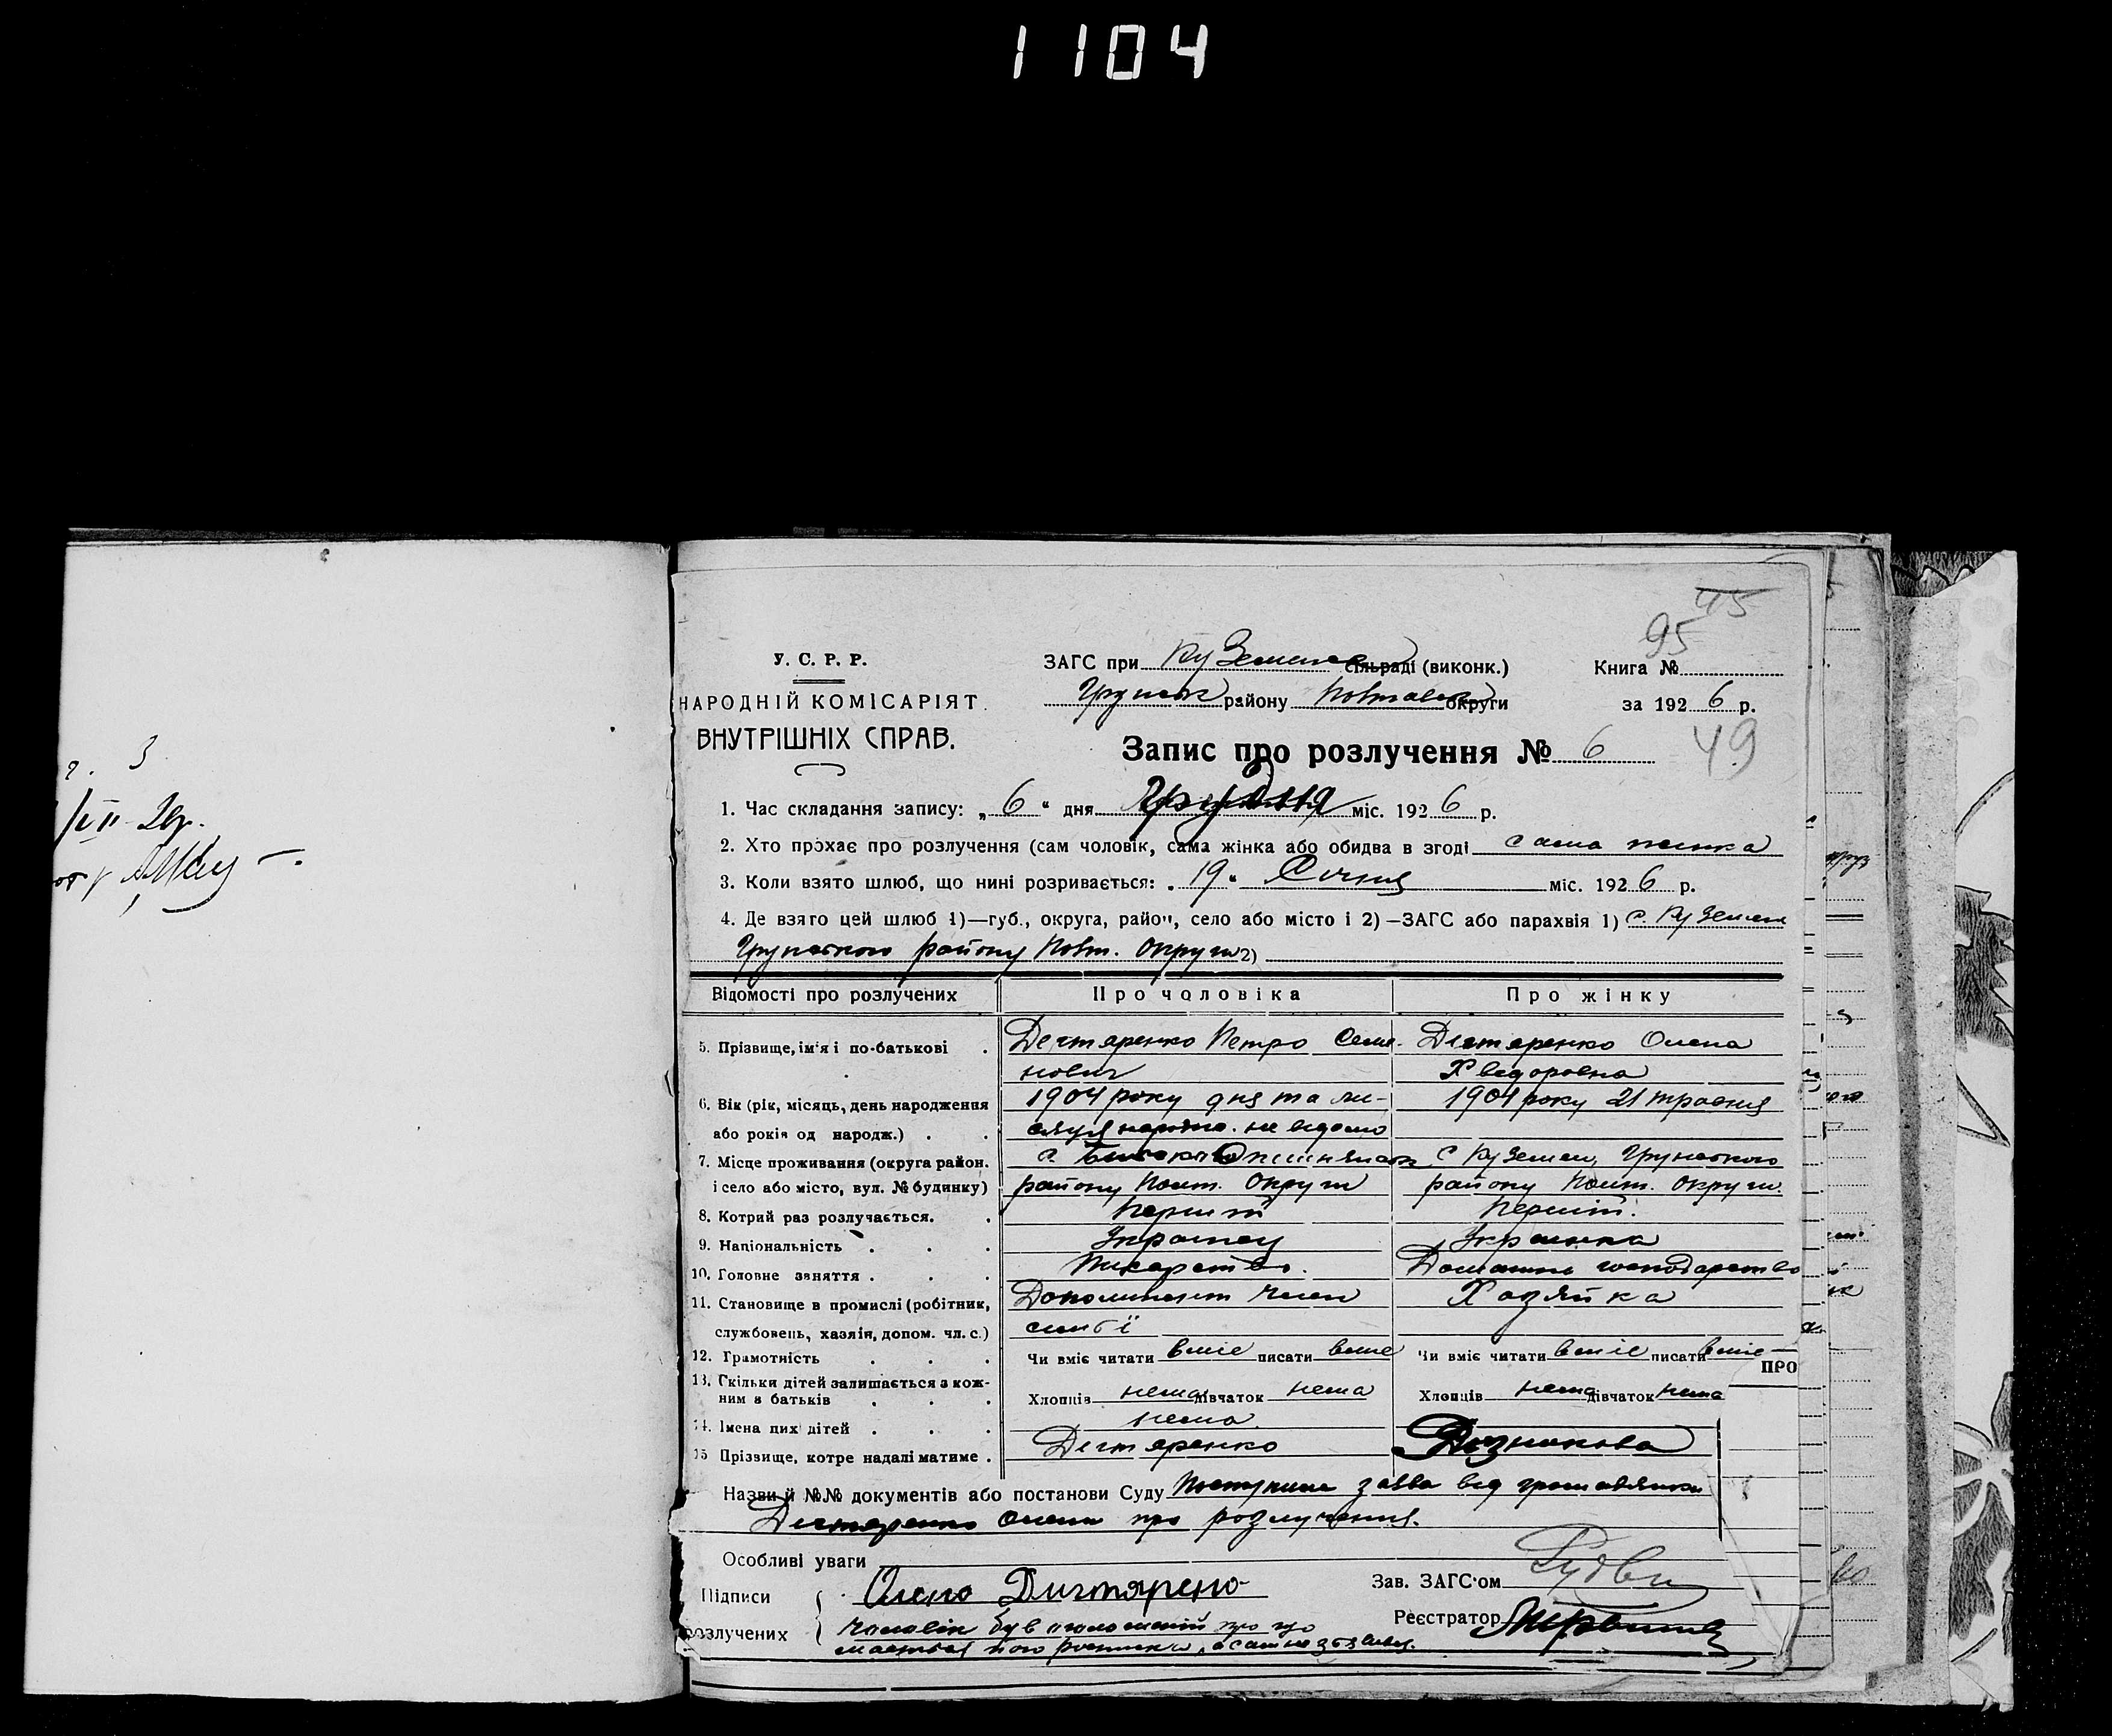 1104
45
95
У. С. Р. Р.
ЗАГС при Куземен сільраді (виконк.)
Книга №
НАРОДНІЙ КОМІСАРІЯТ
Грунськ району Полтавськ округи
за 1926 р.
ВНУТРІШНІХ СПРАВ.
Запис про розлучення № 6
49
1. Час складання запису: „6“ дня Грудня міс. 1926 р.
2. Хто прохає про розлучення (сам чоловік, сама жінка або обидва в згоді сама жинка
3. Коли взято шлюб, що нині розривається: „19“ Січня міс. 1926 р.
4. Де взято цей шлюб 1)—губ., округа, район, село або місто і 2)—ЗАГС або парахвія 1) с. Куземен
Грунського району Полт. Округи 2)
Відомості про розлучених
Про чоловіка
Про жінку
5. Прізвище, ім'я і по-батькові
Дегтяренко Петро Семе-
нович
Дегтяренко Олена
Хведоровна
6. Вік (рік, місяць, день народження
або років од народж.)
1904 року дня та ми-
сяця народж. не відомо
1904 року 21 травня
7. Місце проживання (округа район.
і село або місто, вул. № будинку)
с.
району Полт. Округи
с Куземен, Грунського
району Полт. Округи.
8. Котрий раз розлучається.
Перший
Перший.
9. Національність
Украінец
Украинка
10. Головне заняття
Пикарство.
Домашнє господарство
11. Становище в промислі (робітник,
службовець, хазяїн, допом. чл. с.)
член
симї
Хазяйка
12. Грамотність
Чи вміє читати вміє писати вміє
Чи вміє читати вміє писати вміє
ПРО
13. Скільки дітей залишається з кож-
ним з батьків
Хлопців нема дівчаток нема
Хлопців нема дівчаток нема
14. Імена цих дітей
нема
15 Прізвище, котре надалі матиме
Дегтяренко
Назви й №№ документів або постанови Суду Поступила заява від громадянки
Дегтяренко Олени про розлучення.
Особливі уваги
Підписи
Олена
Зав. ЗАГС'ом
розлучених
Чоловік був про що
його росписка, а сам не зявився.
Реєстратор